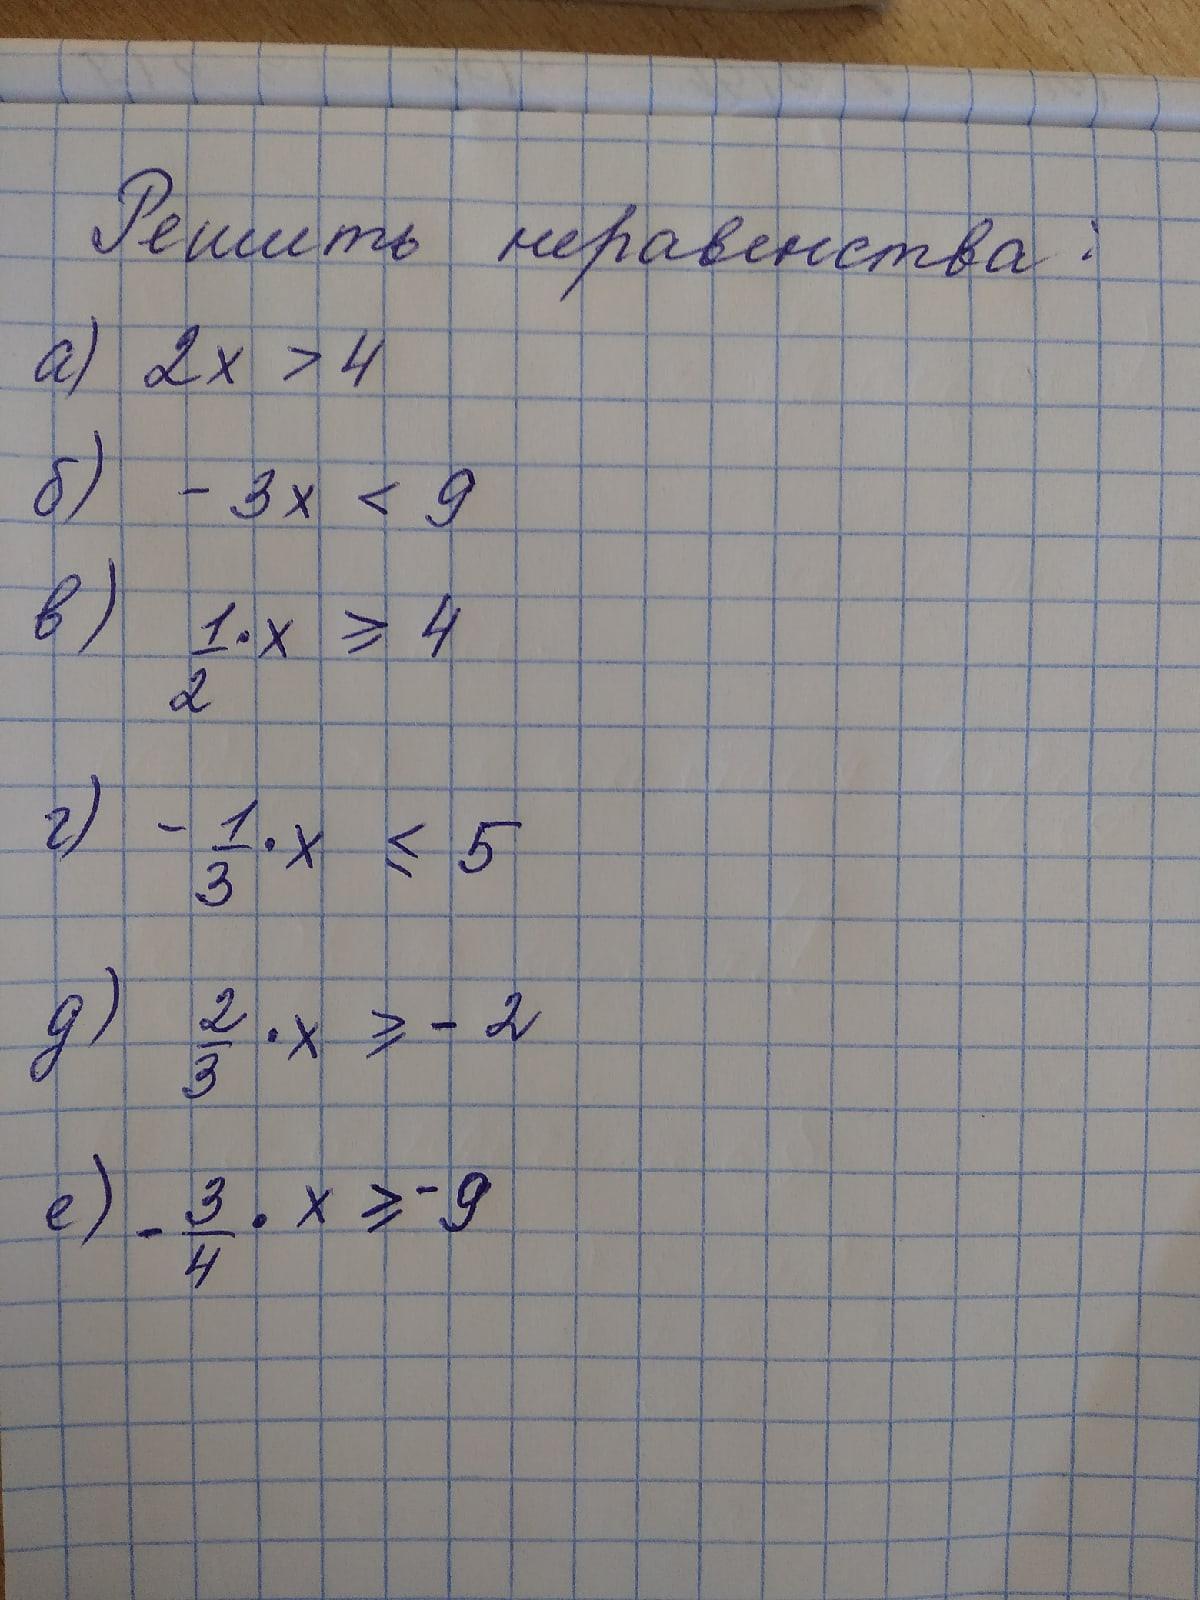 Решить неравенства:
а) 2x > 4
б) - 3x < 9
в) 1/2 · x ⩾ 4
г) - 1/3 · x ⩽ 5
д) 2/3 · x ⩾ - 2
е) - 3/4 · x ⩾ - 9